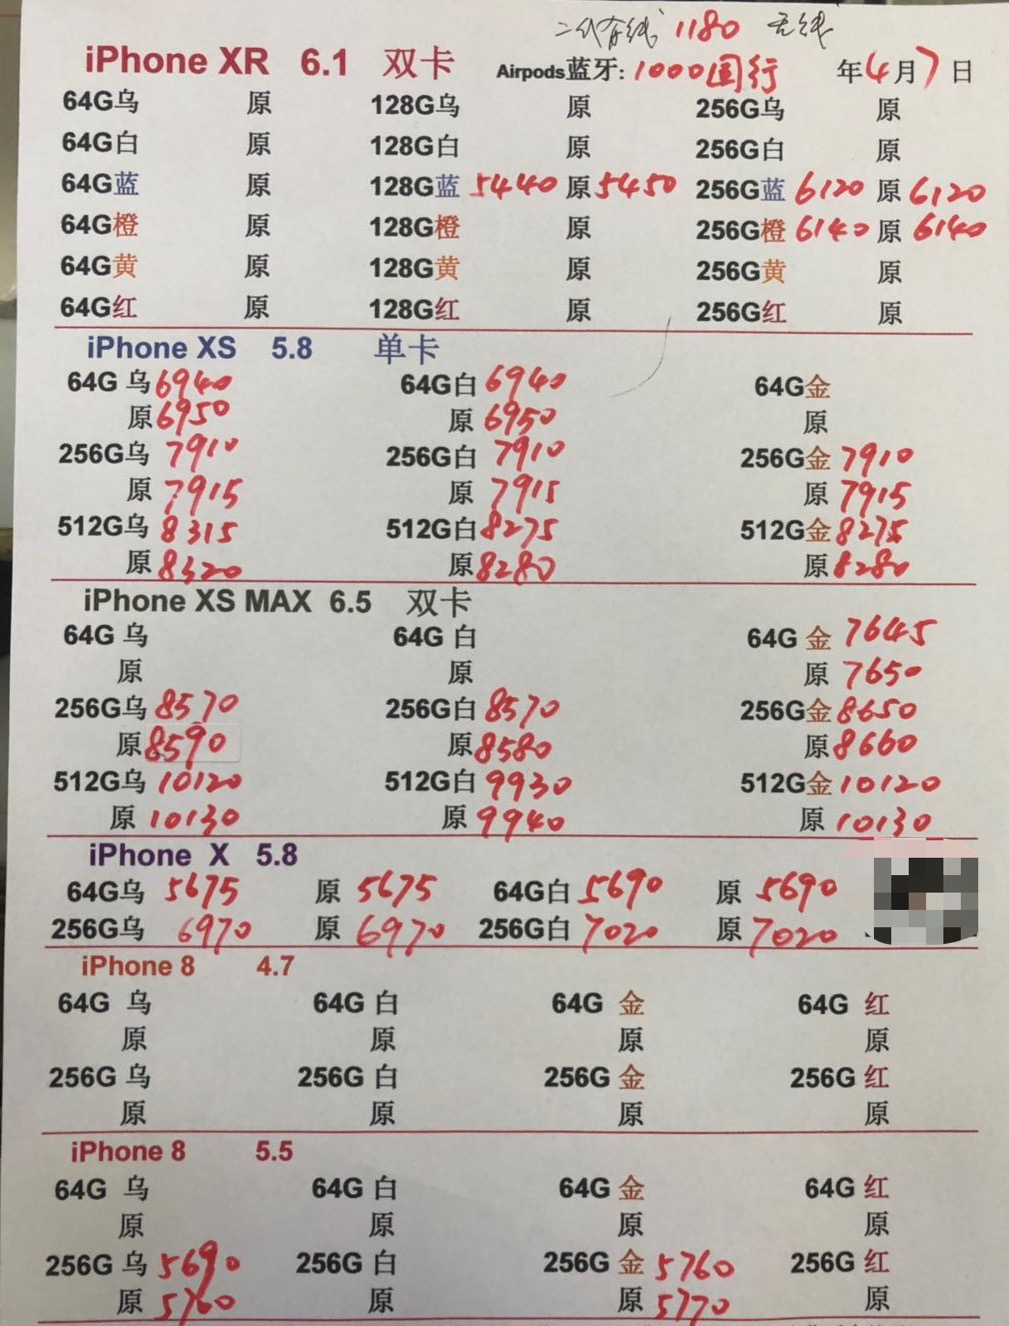 二代有线 1180 无线
iPhone XR 6.1 双卡 Airpods蓝牙: 1000国行 年4月7日
64G乌 原 128G乌 原 256G乌 原
64G白 原 128G白 原 256G白 原
64G蓝 原 128G蓝 5440 原 5450 256G蓝 6120 原 6120
64G橙 原 128G橙 原 256G橙 6140 原 6140
64G黄 原 128G黄 原 256G黄 原
64G红 原 128G红 原 256G红 原
iPhone XS 5.8 单卡
64G 乌 6940 64G白 6940 64G金
原 6950 原 6950 原
256G乌 7910 256G白 7910 256G金 7910
原 7915 原 7915 原 7915
512G乌 8315 512G白 8275 512G金 8275
原 8320 原 8280 原 8280
iPhone XS MAX 6.5 双卡
64G 乌 64G 白 64G 金 7645
原 原 原 7650
256G乌 8570 256G白 8570 256G金 8650
原 8590 原 8580 原 8660
512G乌 10120 512G白 9930 512G金 10120
原 10130 原 9940 原 10130
iPhone X 5.8
64G乌 5675 原 5675 64G白 5690 原 5690
256G乌 6970 原 6970 256G白 7020 原 7020
iPhone 8 4.7
64G 乌 64G 白 64G 金 64G 红
原 原 原 原
256G 乌 256G 白 256G 金 256G 红
原 原 原 原
iPhone 8 5.5
64G 乌 64G 白 64G 金 64G 红
原 原 原 原
256G 乌 5690 256G 白 256G 金 5760 256G 红
原 5700 原 原 5770 原